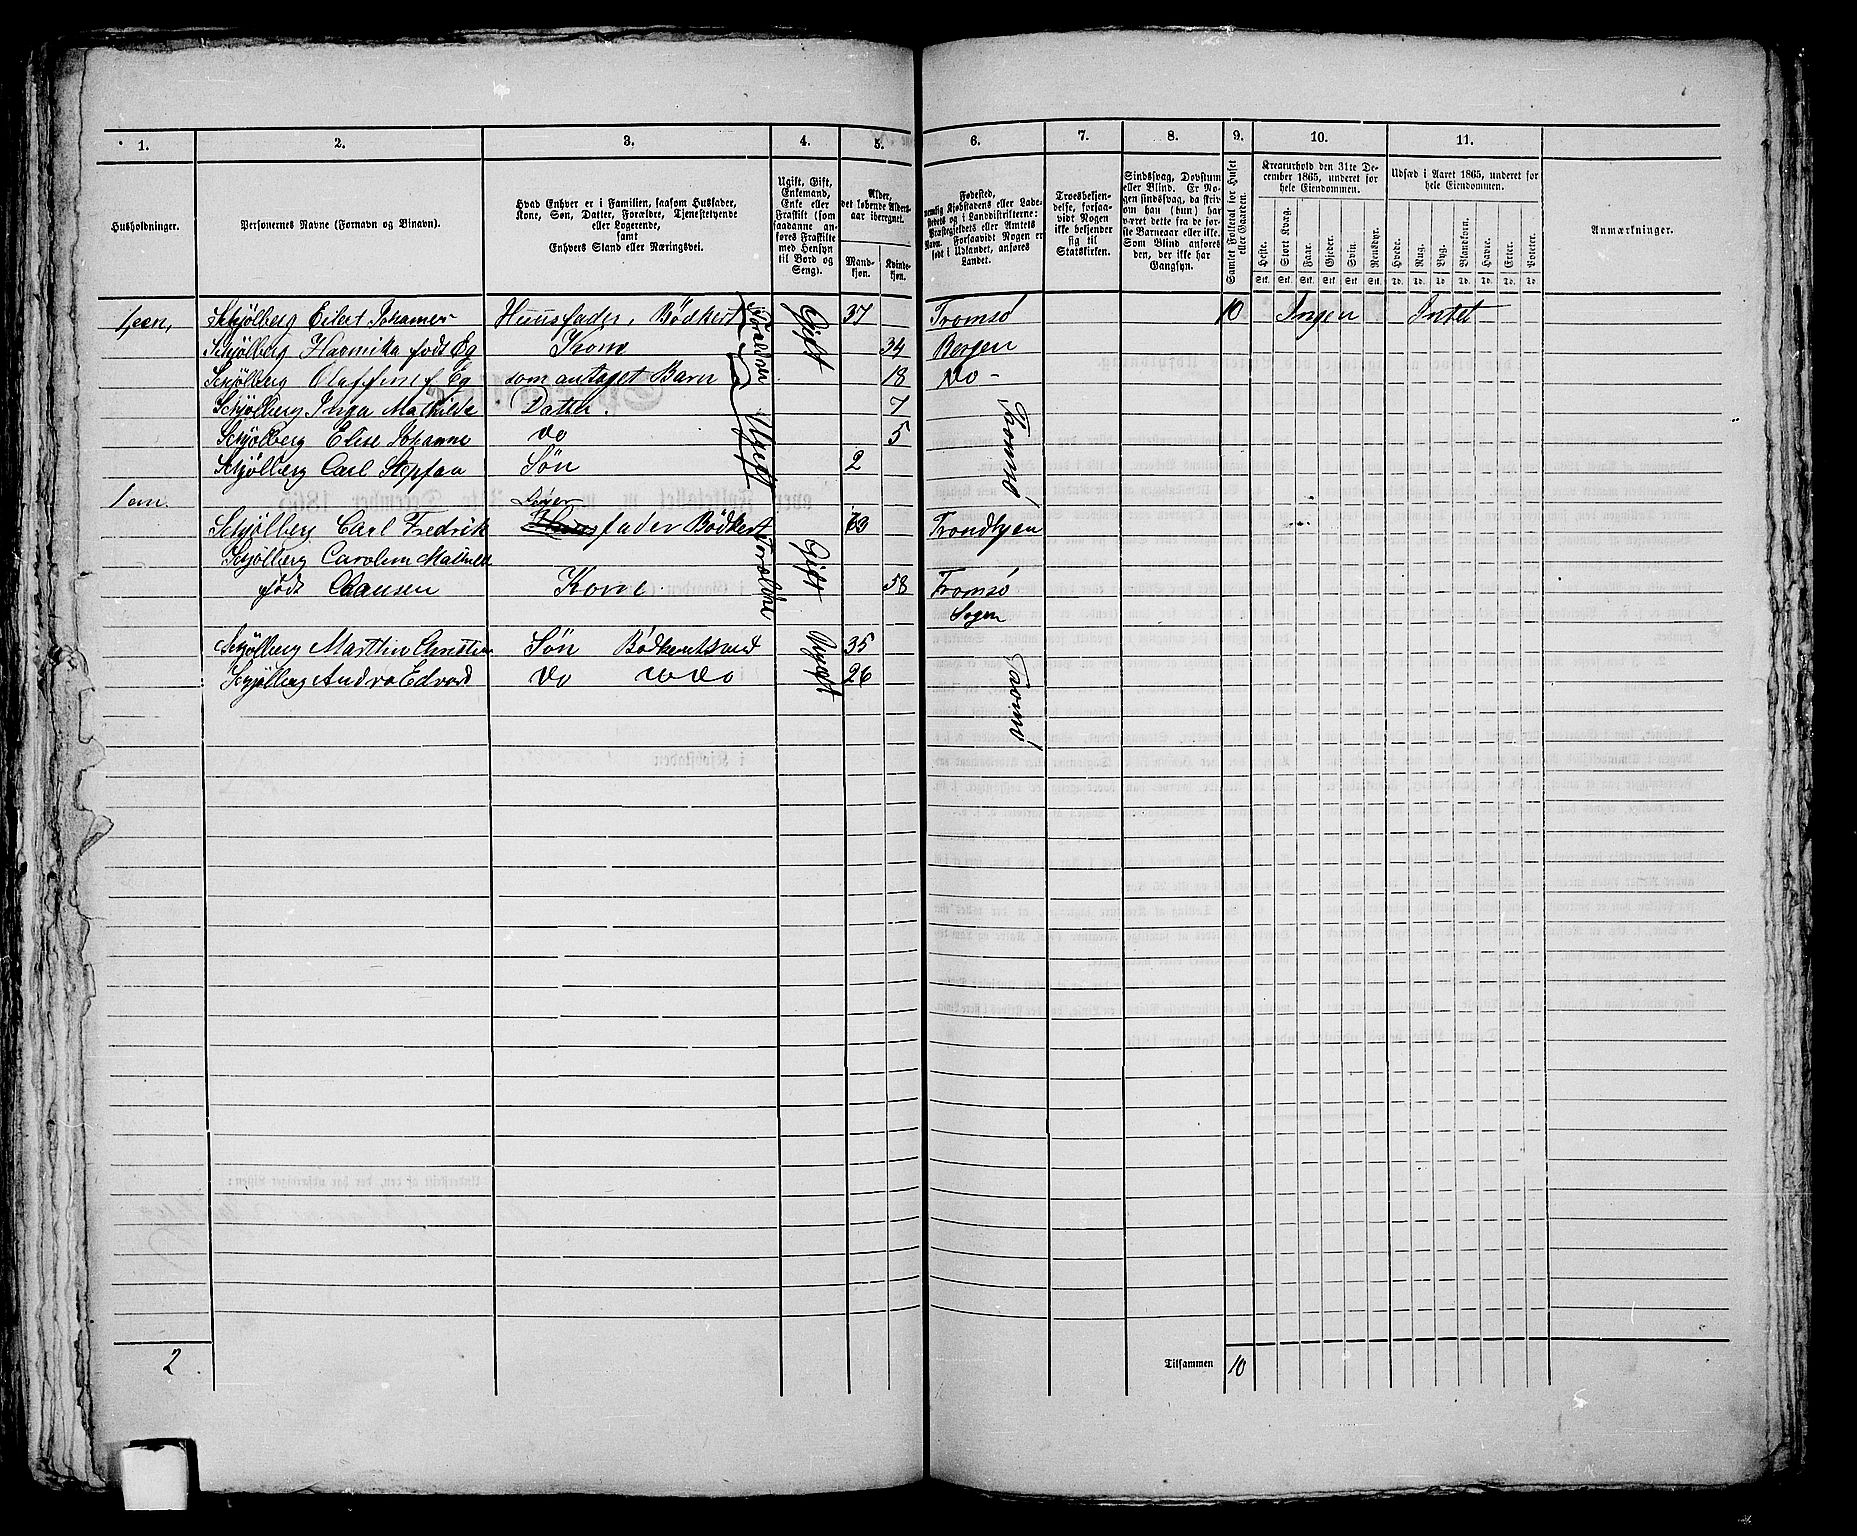 1. 2. 3. 4. 5. 6. 7. 8. 9. 10. 11.
Husholdninger.
Personernes Navne (Fornavn og Binavn).
Hvad Enhver er i Familien, saasom Husfader,
Kone, Søn, Datter, Forældre, Tjenestetyende
eller Logerende,
samt
Enhvers Stand eller Næringsvei.
Ugift, Gift,
Enkemand,
Enke eller
Fraskilt (som
saadanne an-
føres Fraskilte
med Hensyn
til Bord og
Seng).
Alder,
det løbende Alders-
aar iberegnet.
Mand-
kjøn.
Kvinde-
kjøn.
Fødested,
nemlig Kjøbstadens eller Lade-
stedets og i Landdistrikterne:
Præstegjeldets eller Amtets
Navn. Forsaavidt Nogen er
født i Udlandet, anføres
Landet.
Troesbekjen-
delse, forsaa-
vidt Nogen
ikke bekjender
sig til
Statskirken.
Sindssvag, Døvstum
eller Blind. Er No-
gen sindssvag, da skriv
om han (hun) har
været dette fra de før-
ste Barneaar eller ikke.
Som Blind anføres
den, der ikke har
Gangsyn.
Samlet Folketal for Huset
eller Gaarden.
Kreaturhold den 31te De-
cember 1865, underet for
hele Eiendommen.
Heste. Stort Kvæg. Faar. Gjeder. Svin. Rensdyr.
Stk. Stk. Stk. Stk. Stk. Stk.
Udsæd i Aaret 1865, underet for
hele Eiendommen.
Hvede. Rug. Byg. Blandkorn. Havre. Erter. Poteter.
Td. Td. Td. Td. Td. Td. Td.
Anmærkninger.
1een, Schjølberg Eilert Johannes Huusfader, Bødker Gift 37 Tromsø 10 Ingen Intet
Schjølberg Havmika født Eg Kone 34 Bergen
Schjølberg Olaffine f Eg som antaget Barn 18 Do -
Schjølberg Inga Mathilda Datter. Ugift 7 Tromsø
Schjølberg Elise Johanne Do 5
Schjølberg Carl Stepfan Søn 2
1en. Løier
Schjølberg Carl Fredrik fader Bødker Gift 63 Trondhjen
Schjølberg Carolina Mathilde
født Claausen Kone 58 Tromsø
Sogen
Schjølberg Marthin Christian Søn Bødkersvend Ugift 35 Tromsø
Schjølberg Andra Edvard Do Do 26
Forældre
2 Tilsammen 10